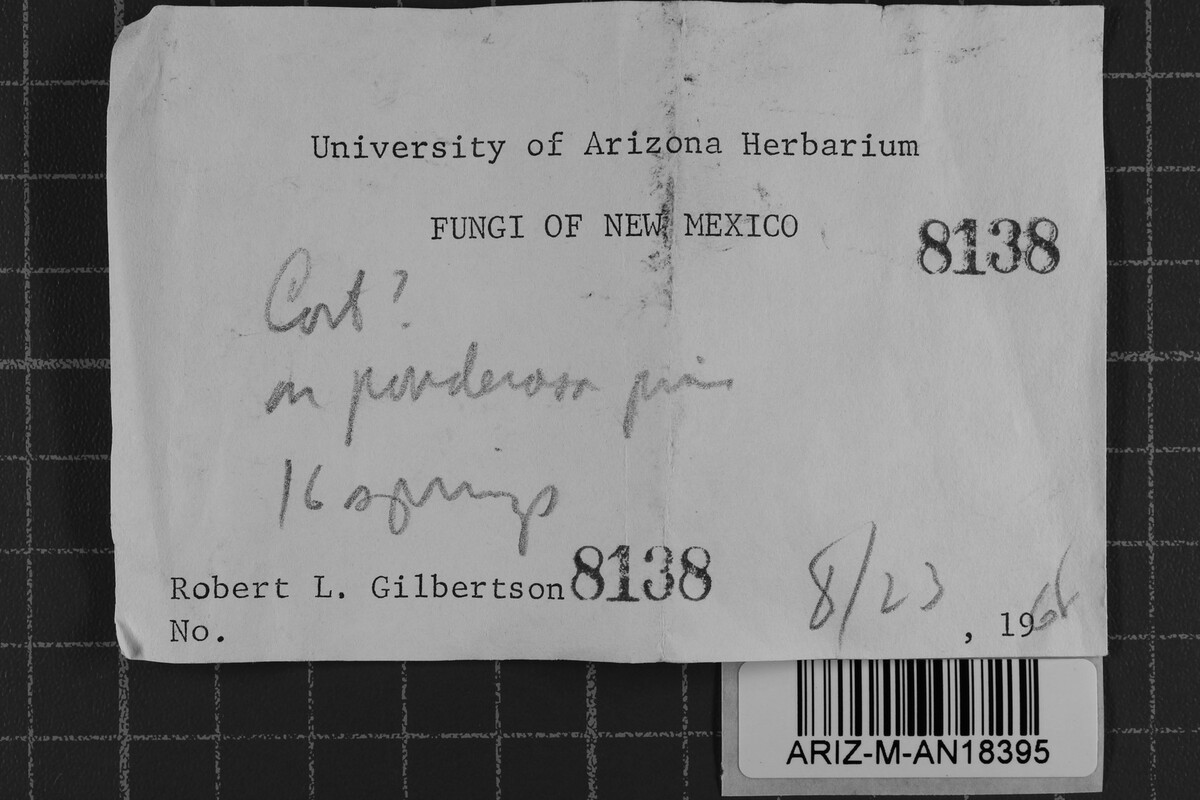 University of Arizona Herbarium
FUNGI OF NEW MEXICO
8138
Cort?
on ponderosa pine
16 springs
Robert L. Gilbertson 8138
No.
8/23, 1968
ARIZ-M-AN18395